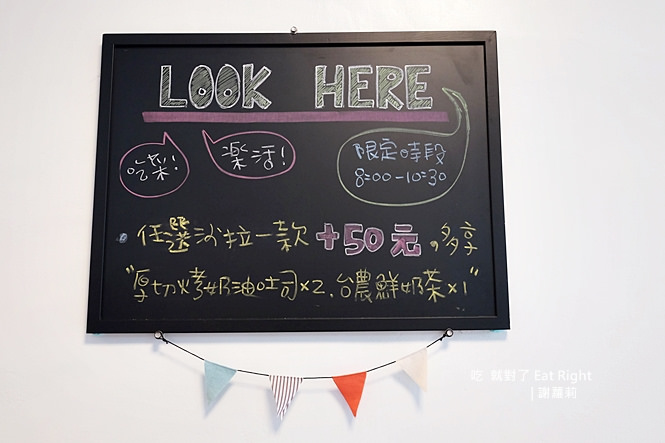 LOOK HERE
吃菜!
樂活!
限定時段
8:00-10:30
任選沙拉一款+50元,多享
"厚切烤奶油吐司×2.台農鮮奶茶×1"
吃 就對了 Eat Right
|謝蘿莉